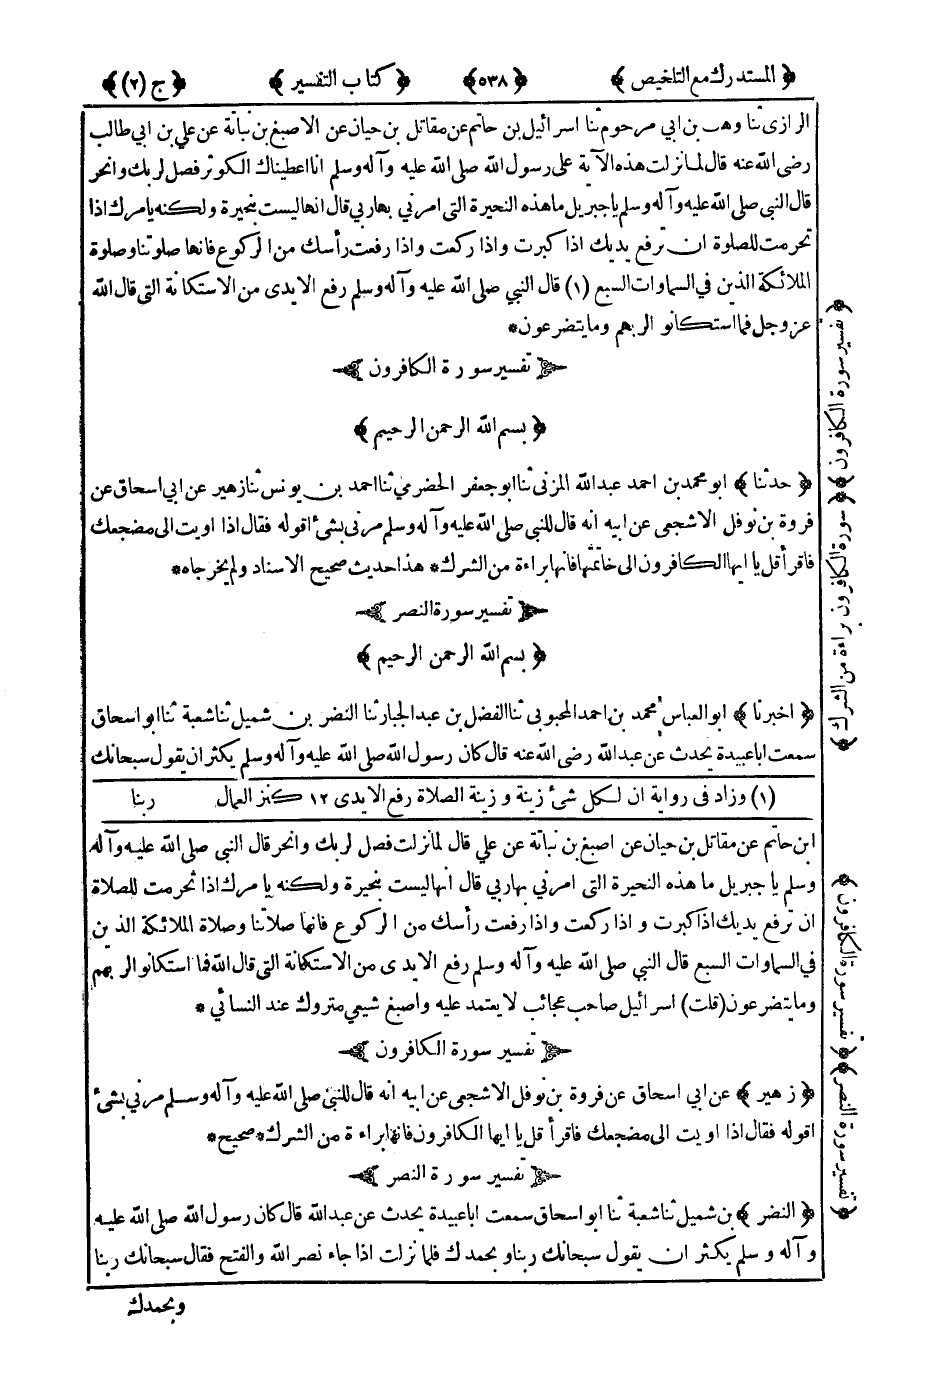 ﴿ المستدرك مع التلخيص ﴾ ﴿ ٥٣٨ ﴾ ﴿ كتاب التفسير ﴾ ﴿ ج (٢) ﴾
الرازى ثنا وهب بن ابي مرحوم ثنا اسرائيل بن حاتم عن مقاتل بن حيان عن الاصبغ بن نباتة عن علي بن ابي طالب
رضى الله عنه قال لما نزلت هذه الآية على رسول الله صلى الله عليه وآله وسلم انا اعطيناك الكوثر فصل لربك وانحر
قال النبي صلى الله عليه وآله وسلم يا جبريل ما هذه النحيرة التى امرني بها ربي قال انها ليست بنحيرة ولكنه يا مرك اذا
تحرمت للصلوة ان ترفع يديك اذا كبرت واذا ركعت واذا رفعت رأسك من الركوع فانها صلوتنا وصلوة
الملائكة الذين في السماوات السبع (١) قال النبي صلى الله عليه وآله وسلم رفع الايدى من الاستكانة التى قال الله
عز وجل فما استكانوا لربهم وما يتضرعون *
تفسير سورة الكافرون
﴿ بسم الله الرحمن الرحيم ﴾
﴿ حدثنا ﴾ ابو محمد بن احمد عبدالله المزنى ثنا ابو جعفر الحضرمي ثنا احمد بن يونس ثنا زهير عن ابي اسحاق عن
فروة بن نوفل الاشجعى عن ابيه انه قال للنبي صلى الله عليه وآله وسلم مرنى بشئ اقوله فقال اذا اويت الى مضجعك
فاقرأ قل يا ايها الكافرون الى خاتمتها فانها براءة من الشرك * هذا حديث صحيح الاسناد ولم يخرجاه *
تفسير سورة النصر
﴿ بسم الله الرحمن الرحيم ﴾
﴿ اخبرنا ﴾ ابو العباس محمد بن احمد المحبوبى ثنا الفضل بن عبد الجبار ثنا النضر بن شميل ثنا شعبة ثنا ابو اسحاق
سمعت ابا عبيدة يحدث عن عبدالله رضى الله عنه قال كان رسول الله صلى الله عليه وآله وسلم يكثر ان يقول سبحانك
(١) وزاد فى رواية ان لكل شئ زينة وزينة الصلاة رفع الايدى ١٢ كنز العمال
ربنا
ابن حاتم عن مقاتل بن حيان عن اصبغ بن نباتة عن علي قال لما نزلت فصل لربك وانحر قال النبى صلى الله عليه وآله
وسلم يا جبريل ما هذه النحيرة التى امرني بها ربي قال انها ليست بنحيرة ولكنه يا مرك اذا تحرمت للصلاة
ان ترفع يديك اذا كبرت واذا ركعت واذا رفعت رأسك من الركوع فانها صلاتنا وصلاة الملائكة الذين
في السماوات السبع قال النبي صلى الله عليه وآله وسلم رفع الايدى من الاستكانة التى قال الله فما استكانوا لربهم
وما يتضرعون (قلت) اسرائيل صاحب عجائب لا يعتمد عليه واصبغ شيعي متروك عند النسائي *
تفسير سورة الكافرون
﴿ زهير ﴾ عن ابي اسحاق عن فروة بن نوفل الاشجعى عن ابيه انه قال للنبى صلى الله عليه وآله وسلم مرني بشئ
اقوله فقال اذا اويت الى مضجعك فاقرأ قل يا ايها الكافرون فانها براءة من الشرك * صحيح *
تفسير سورة النصر
﴿ النضر ﴾ بن شميل ثنا شعبة ثنا ابو اسحاق سمعت ابا عبيدة يحدث عن عبدالله قال كان رسول الله صلى الله عليه
وآله وسلم يكثر ان يقول سبحانك ربنا وبحمدك فلما نزلت اذا جاء نصر الله والفتح فقال سبحانك ربنا
وبحمدك
﴿ تفسير سورة الكافرون ﴾ ﴿ سورة الكافرون براءة من الشرك ﴾
﴿ تفسير سورة الكافرون ﴾ ﴿ تفسير سورة النصر ﴾